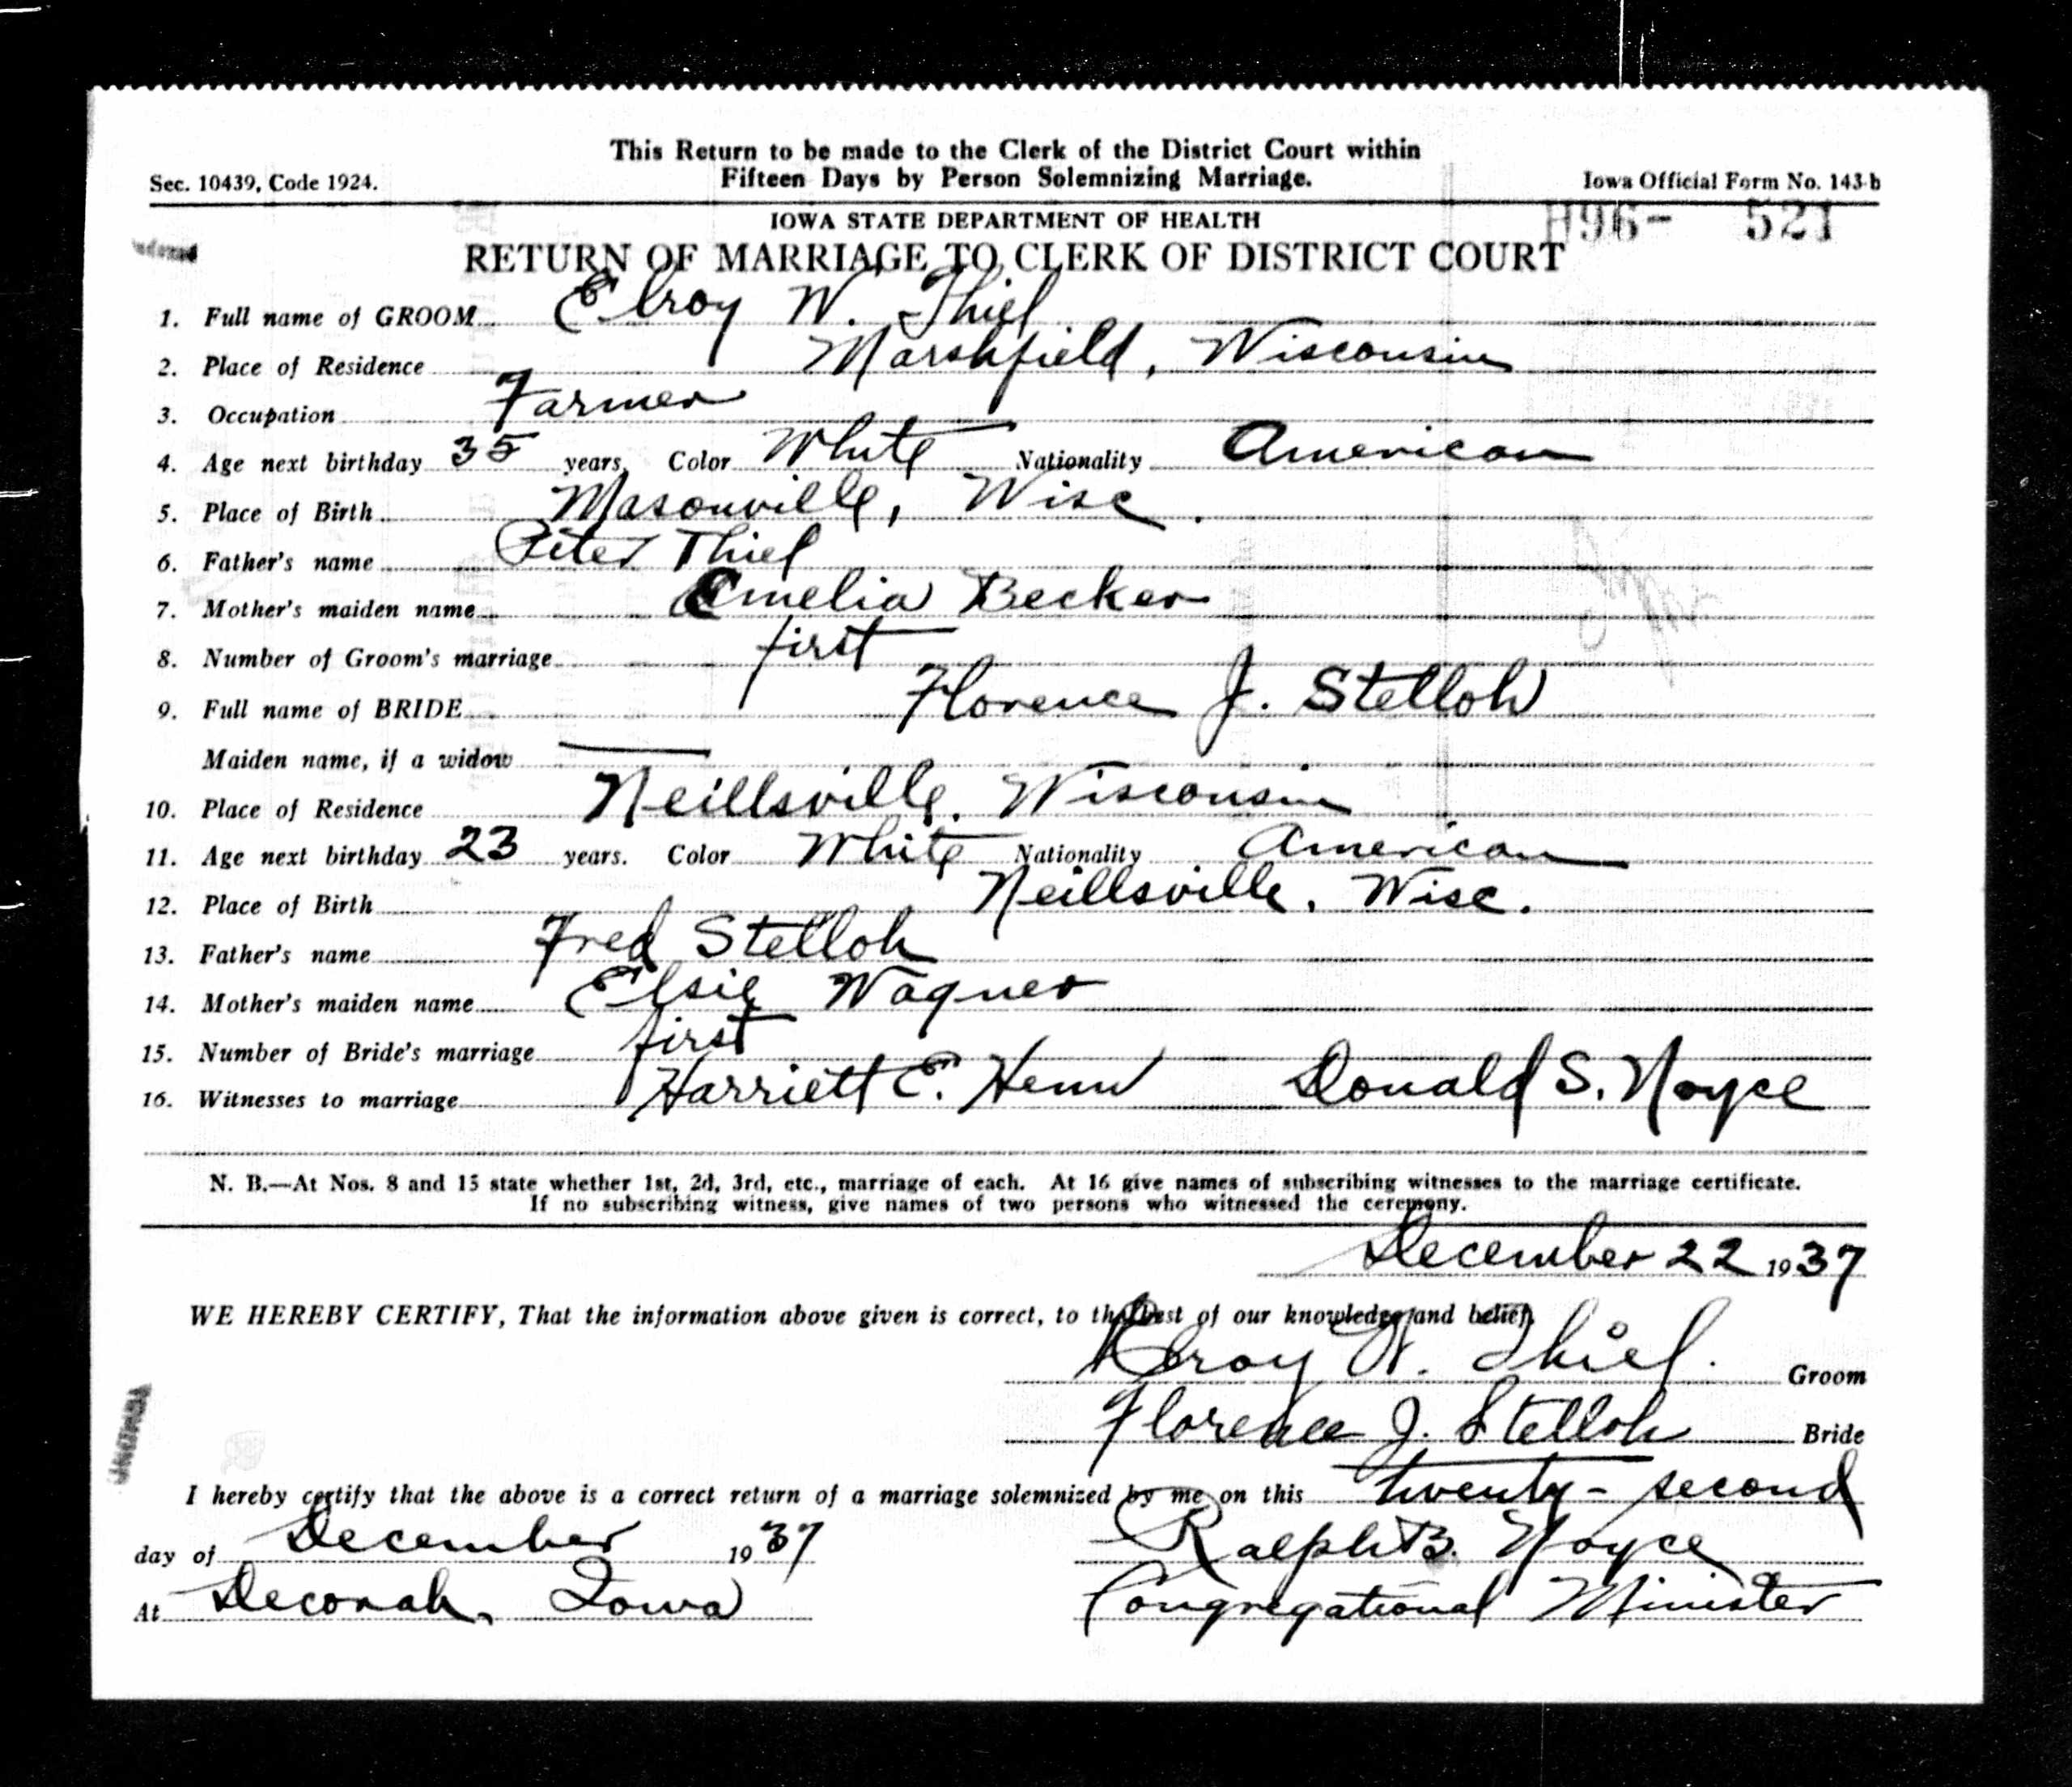 This Return to be made to the Clerk of the District Court within
Sec. 10439, Code 1924. Fifteen Days by Person Solemnizing Marriage. Iowa Official Form No. 143-b
IOWA STATE DEPARTMENT OF HEALTH
H96- 521
RETURN OF MARRIAGE TO CLERK OF DISTRICT COURT
1. Full name of GROOM Elroy W. Thiel
2. Place of Residence Marshfield, Wisconsin
3. Occupation Farmer
4. Age next birthday 35 years, Color White Nationality American
5. Place of Birth Masonville, Wisc.
6. Father's name Peter Thiel
7. Mother's maiden name Emelia Becker
8. Number of Groom's marriage first
9. Full name of BRIDE Florence J. Stelloh
Maiden name, if a widow —
10. Place of Residence Neillsville, Wisconsin
11. Age next birthday 23 years. Color White Nationality American
12. Place of Birth Neillsville, Wisc.
13. Father's name Fred Stelloh
14. Mother's maiden name Elsie Wagner
15. Number of Bride's marriage first
16. Witnesses to marriage Harriett E. Henn Donald S. Noyce
N. B.—At Nos. 8 and 15 state whether 1st, 2d, 3rd, etc., marriage of each. At 16 give names of subscribing witnesses to the marriage certificate.
If no subscribing witness, give names of two persons who witnessed the ceremony.
December 22 1937
WE HEREBY CERTIFY, That the information above given is correct, to the best of our knowledge and belief.
Elroy W. Thiel. Groom
Florence J. Stelloh Bride
I hereby certify that the above is a correct return of a marriage solemnized by me on this twenty-second
day of December 1937 Ralph B. Noyce
At Decorah, Iowa Congregational Minister